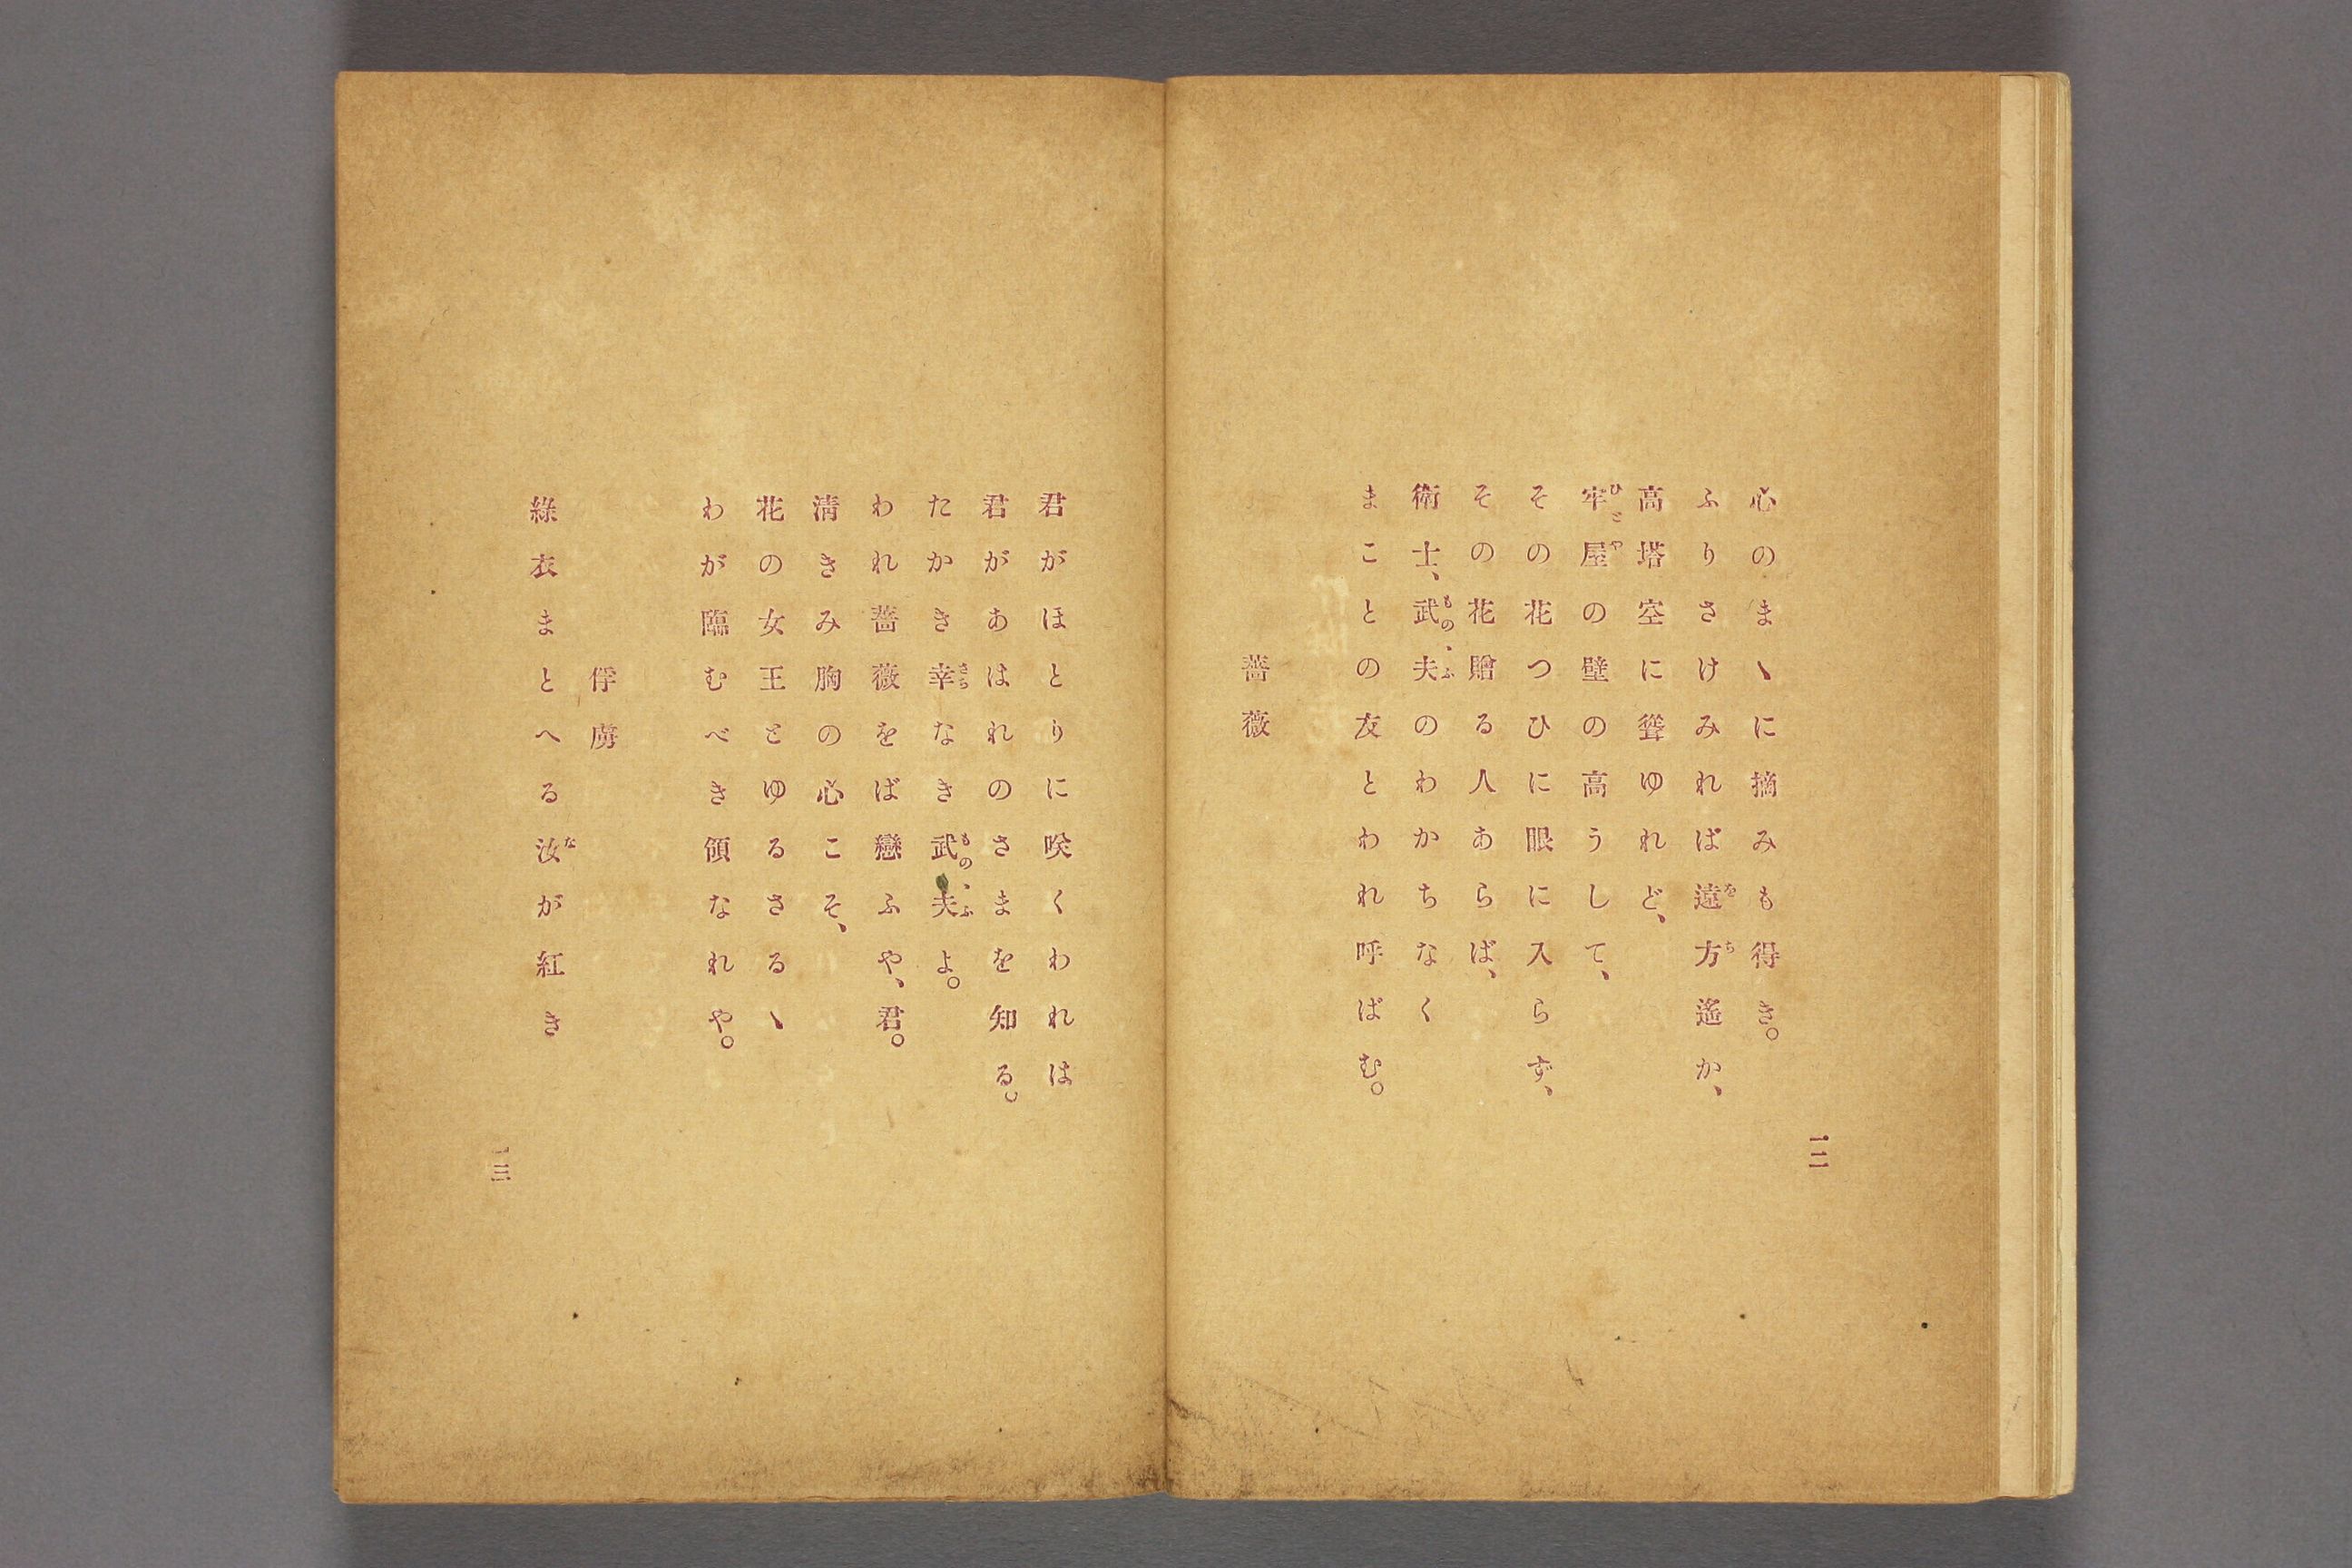 一二
心のまゝに摘みも得き。
ふりさけみれば遠方遙か、
高塔空に聳ゆれど、
牢屋の壁の高うして、
その花つひに眼に入らず、
その花贈る人あらば、
衛士、武夫のわかちなく
まことの友とわれ呼ばむ。
薔薇
君がほとりに咲くわれは
君があはれのさまを知る。
たかき幸なき武夫よ。
われ薔薇をば戀ふや、君。
淸きみ胸の心こそ、
花の女王とゆるさるゝ
わが臨むべき領なれや。
俘虜
綠衣まとへる汝が紅き
一三